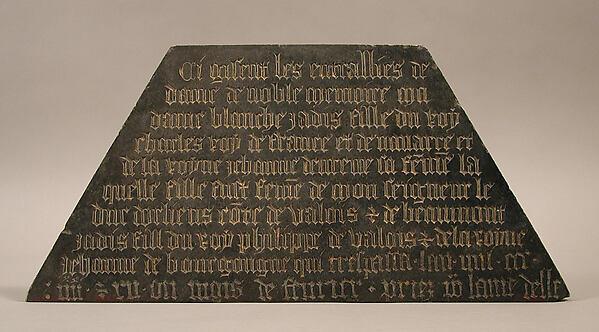 Ci gisent les entrailles de
dame de noble memoire ma
dame blanche jadis fille du roy
charles roy de france et de navarre et
de la royne jehanne deureue sa feme la
quelle fille fust feme de mon seigneur le
duc dorliens cote de valois & de beaumont
jadis fill du roy philippe de valois & de la royne
jehanne de bourgoungne qui trespassa lan mil ccc
iiii xx xii ou mois de feurier priez po lame delle